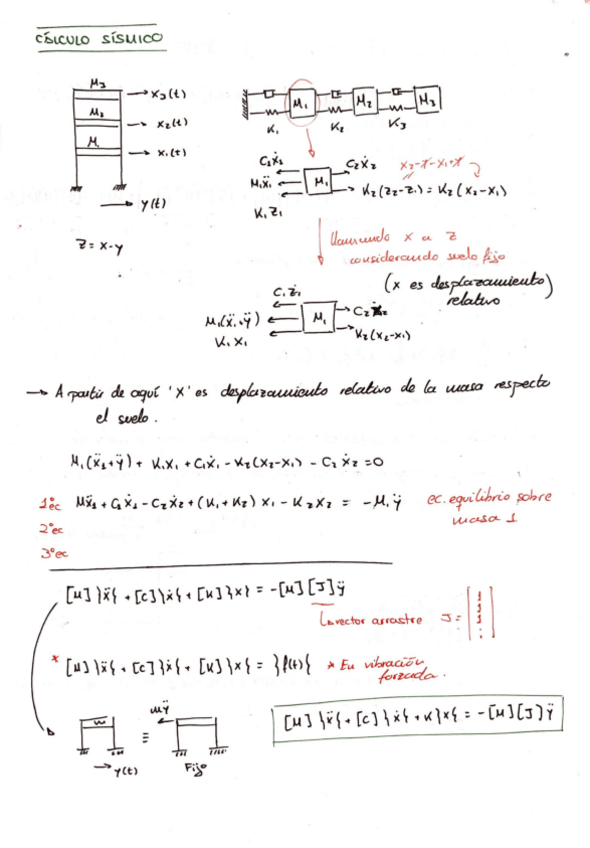 CÁLCULO SÍSMICO
M3
→ x3(t)
M2
→ x2(t)
M1
→ x1(t)
→ y(t)
z = x-y
M1 M2 M3
K1 K2 K3
C1ẋ1 C2ẋ2 x2-y-x1+y
M1ẍ1 M1 K2(z2-z1) = K2(x2-x1)
K1z1
llamando x a z
considerando suelo fijo
(x es desplazamiento relativo)
C1ż1
M1(ẍ1+ÿ) M1 C2ẋ2
K1x1 K2(x2-x1)
→ A partir de aquí 'x' es desplazamiento relativo de la masa respecto
el suelo.
M1(ẍ1+ÿ) + K1x1 + C1ẋ1 - K2(x2-x1) - C2ẋ2 = 0
1ºec Mẍ1 + C1ẋ1 - C2ẋ2 + (K1+K2) x1 - K2x2 = -M1ÿ ec. equilibrio sobre
masa 1
2ºec
3ºec
[M]}ẍ{ + [C]}ẋ{ + [K]}x{ = -[M][J]ÿ
↳ vector arrastre J = [1 1 1 ⋮]
* [M]}ẍ{ + [C]}ẋ{ + [K]}x{ = }f(t){ * En vibración
forzada.
[M]}ẍ{ + [C]}ẋ{ + K}x{ = -[M][J]ÿ
m ≡ mÿ
→ y(t) Fijo